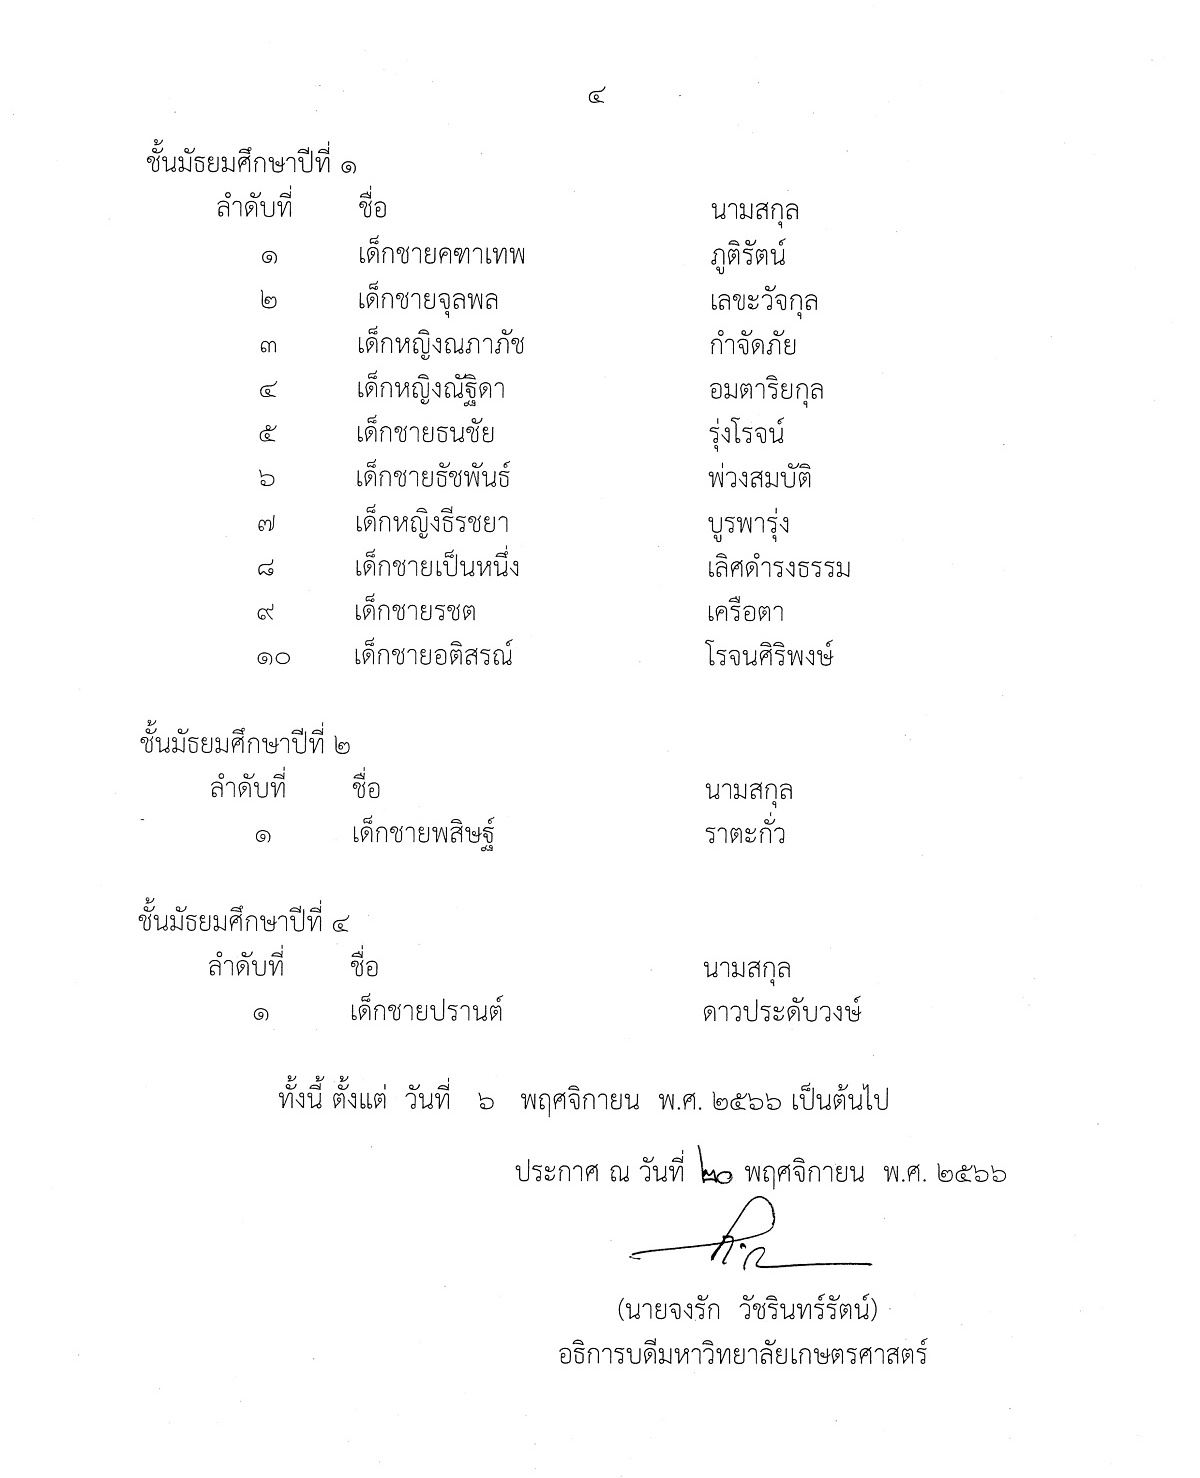 ๔
ชั้นมัธยมศึกษาปีที่ ๑
ลำดับที่ ชื่อ นามสกุล
๑ เด็กชายคฑาเทพ ภูติรัตน์
๒ เด็กชายจุลพล เลขะวัจกุล
๓ เด็กหญิงณภาภัช กำจัดภัย
๔ เด็กหญิงณัฐิดา อมตาริยกุล
๕ เด็กชายธนชัย รุ่งโรจน์
๖ เด็กชายธัชพันธ์ พ่วงสมบัติ
๗ เด็กหญิงธีรชยา บูรพารุ่ง
๘ เด็กชายเป็นหนึ่ง เลิศดำรงธรรม
๙ เด็กชายรชต เครือตา
๑๐ เด็กชายอติสรณ์ โรจนศิริพงษ์
ชั้นมัธยมศึกษาปีที่ ๒
ลำดับที่ ชื่อ นามสกุล
๑ เด็กชายพสิษฐ์ ราตะกั่ว
ชั้นมัธยมศึกษาปีที่ ๔
ลำดับที่ ชื่อ นามสกุล
๑ เด็กชายปรานต์ ดาวประดับวงษ์
ทั้งนี้ ตั้งแต่ วันที่ ๖ พฤศจิกายน พ.ศ. ๒๕๖๖ เป็นต้นไป
ประกาศ ณ วันที่ ๒๐ พฤศจิกายน พ.ศ. ๒๕๖๖
(นายจงรัก วัชรินทร์รัตน์)
อธิการบดีมหาวิทยาลัยเกษตรศาสตร์